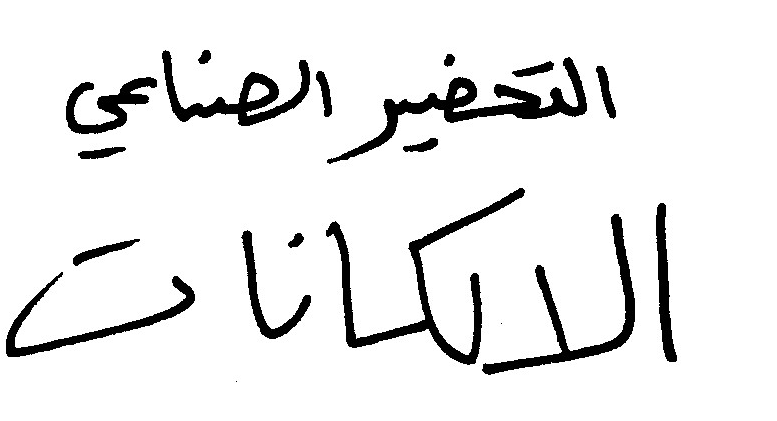 التحضير الصناعي
الالكانات